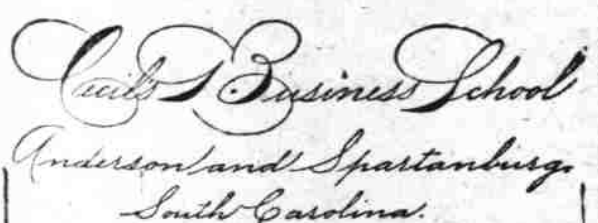 Cecil's Business School
Anderson and Spartanburg.
South Carolina.